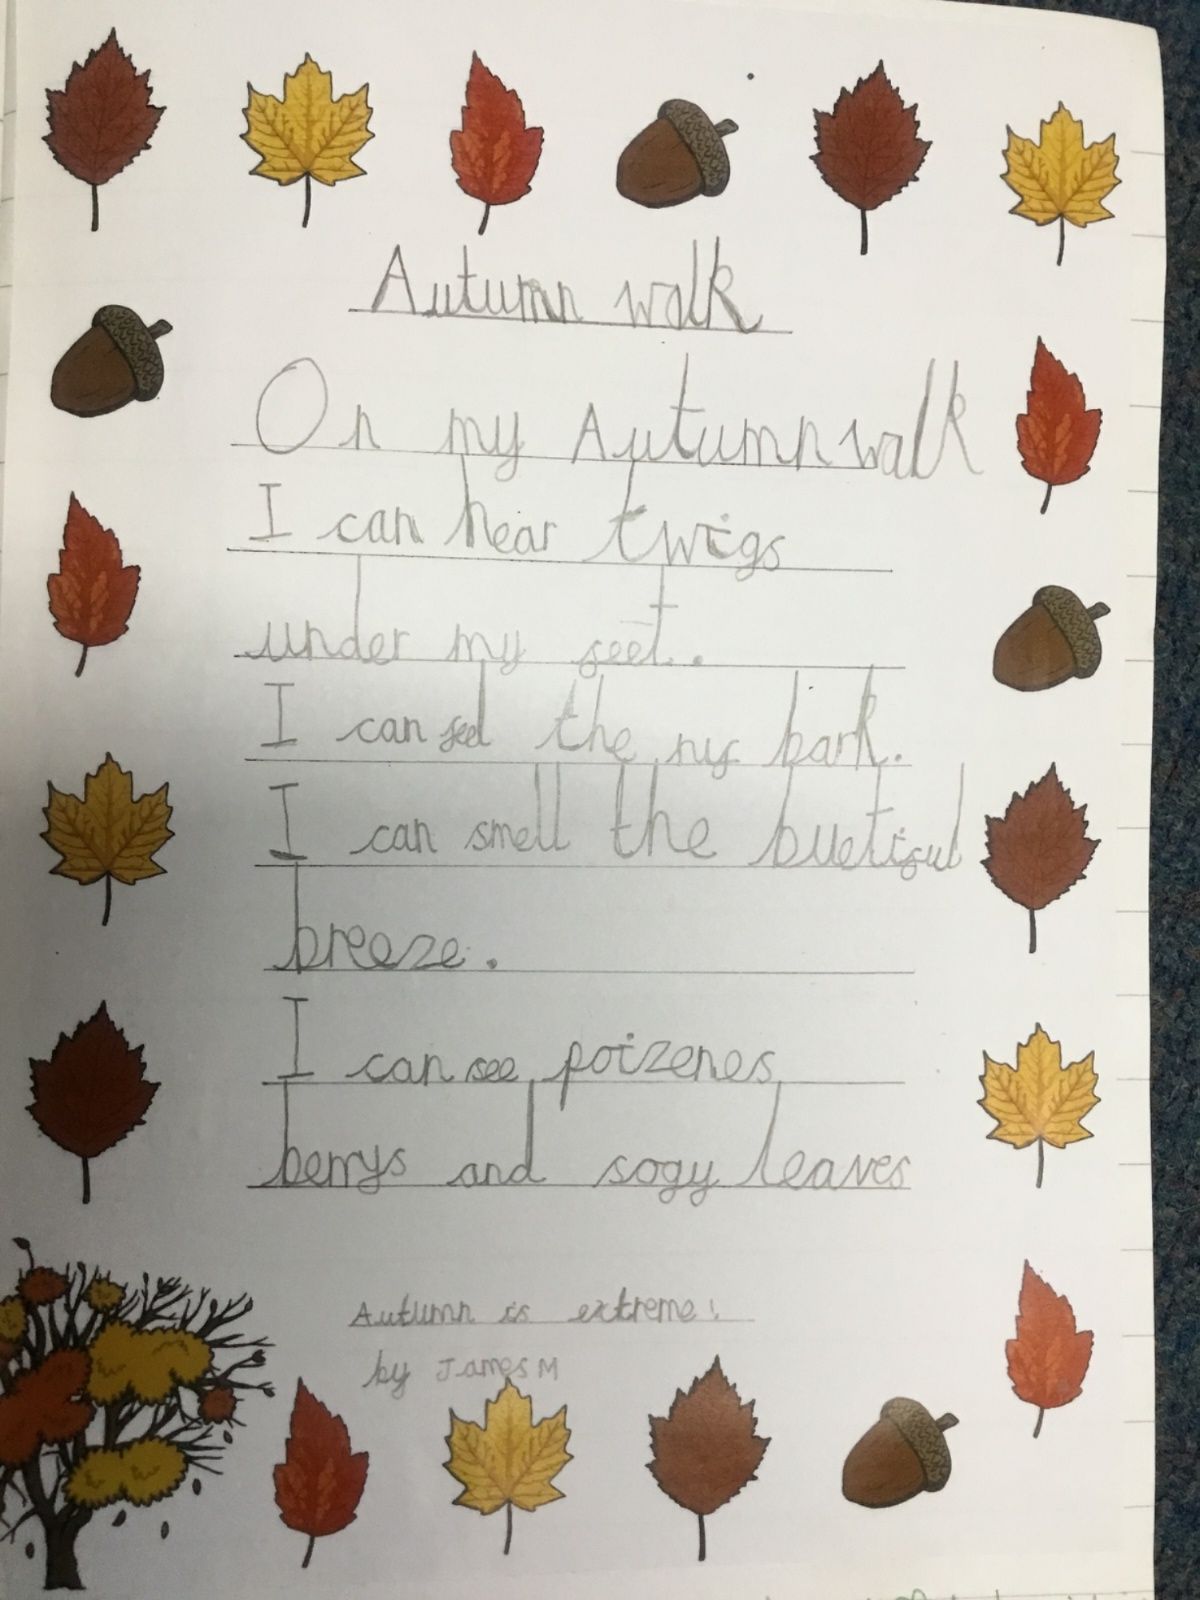 Autumn walk
On my Autumn walk
I can hear twigs
under my feet.
I can feel the bark.
I can smell the buetiful
breeze.
I can see poizenes
berrys and sogy leaves
Autumn is extreme!
by James M